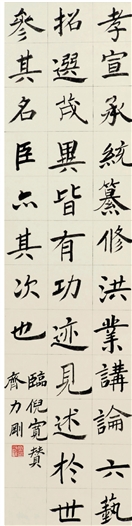 孝宣承統纂修洪業講論六藝
招選茂異皆有功迹見述於世
參其名臣亦其次也
臨倪寬贊
齊力剛